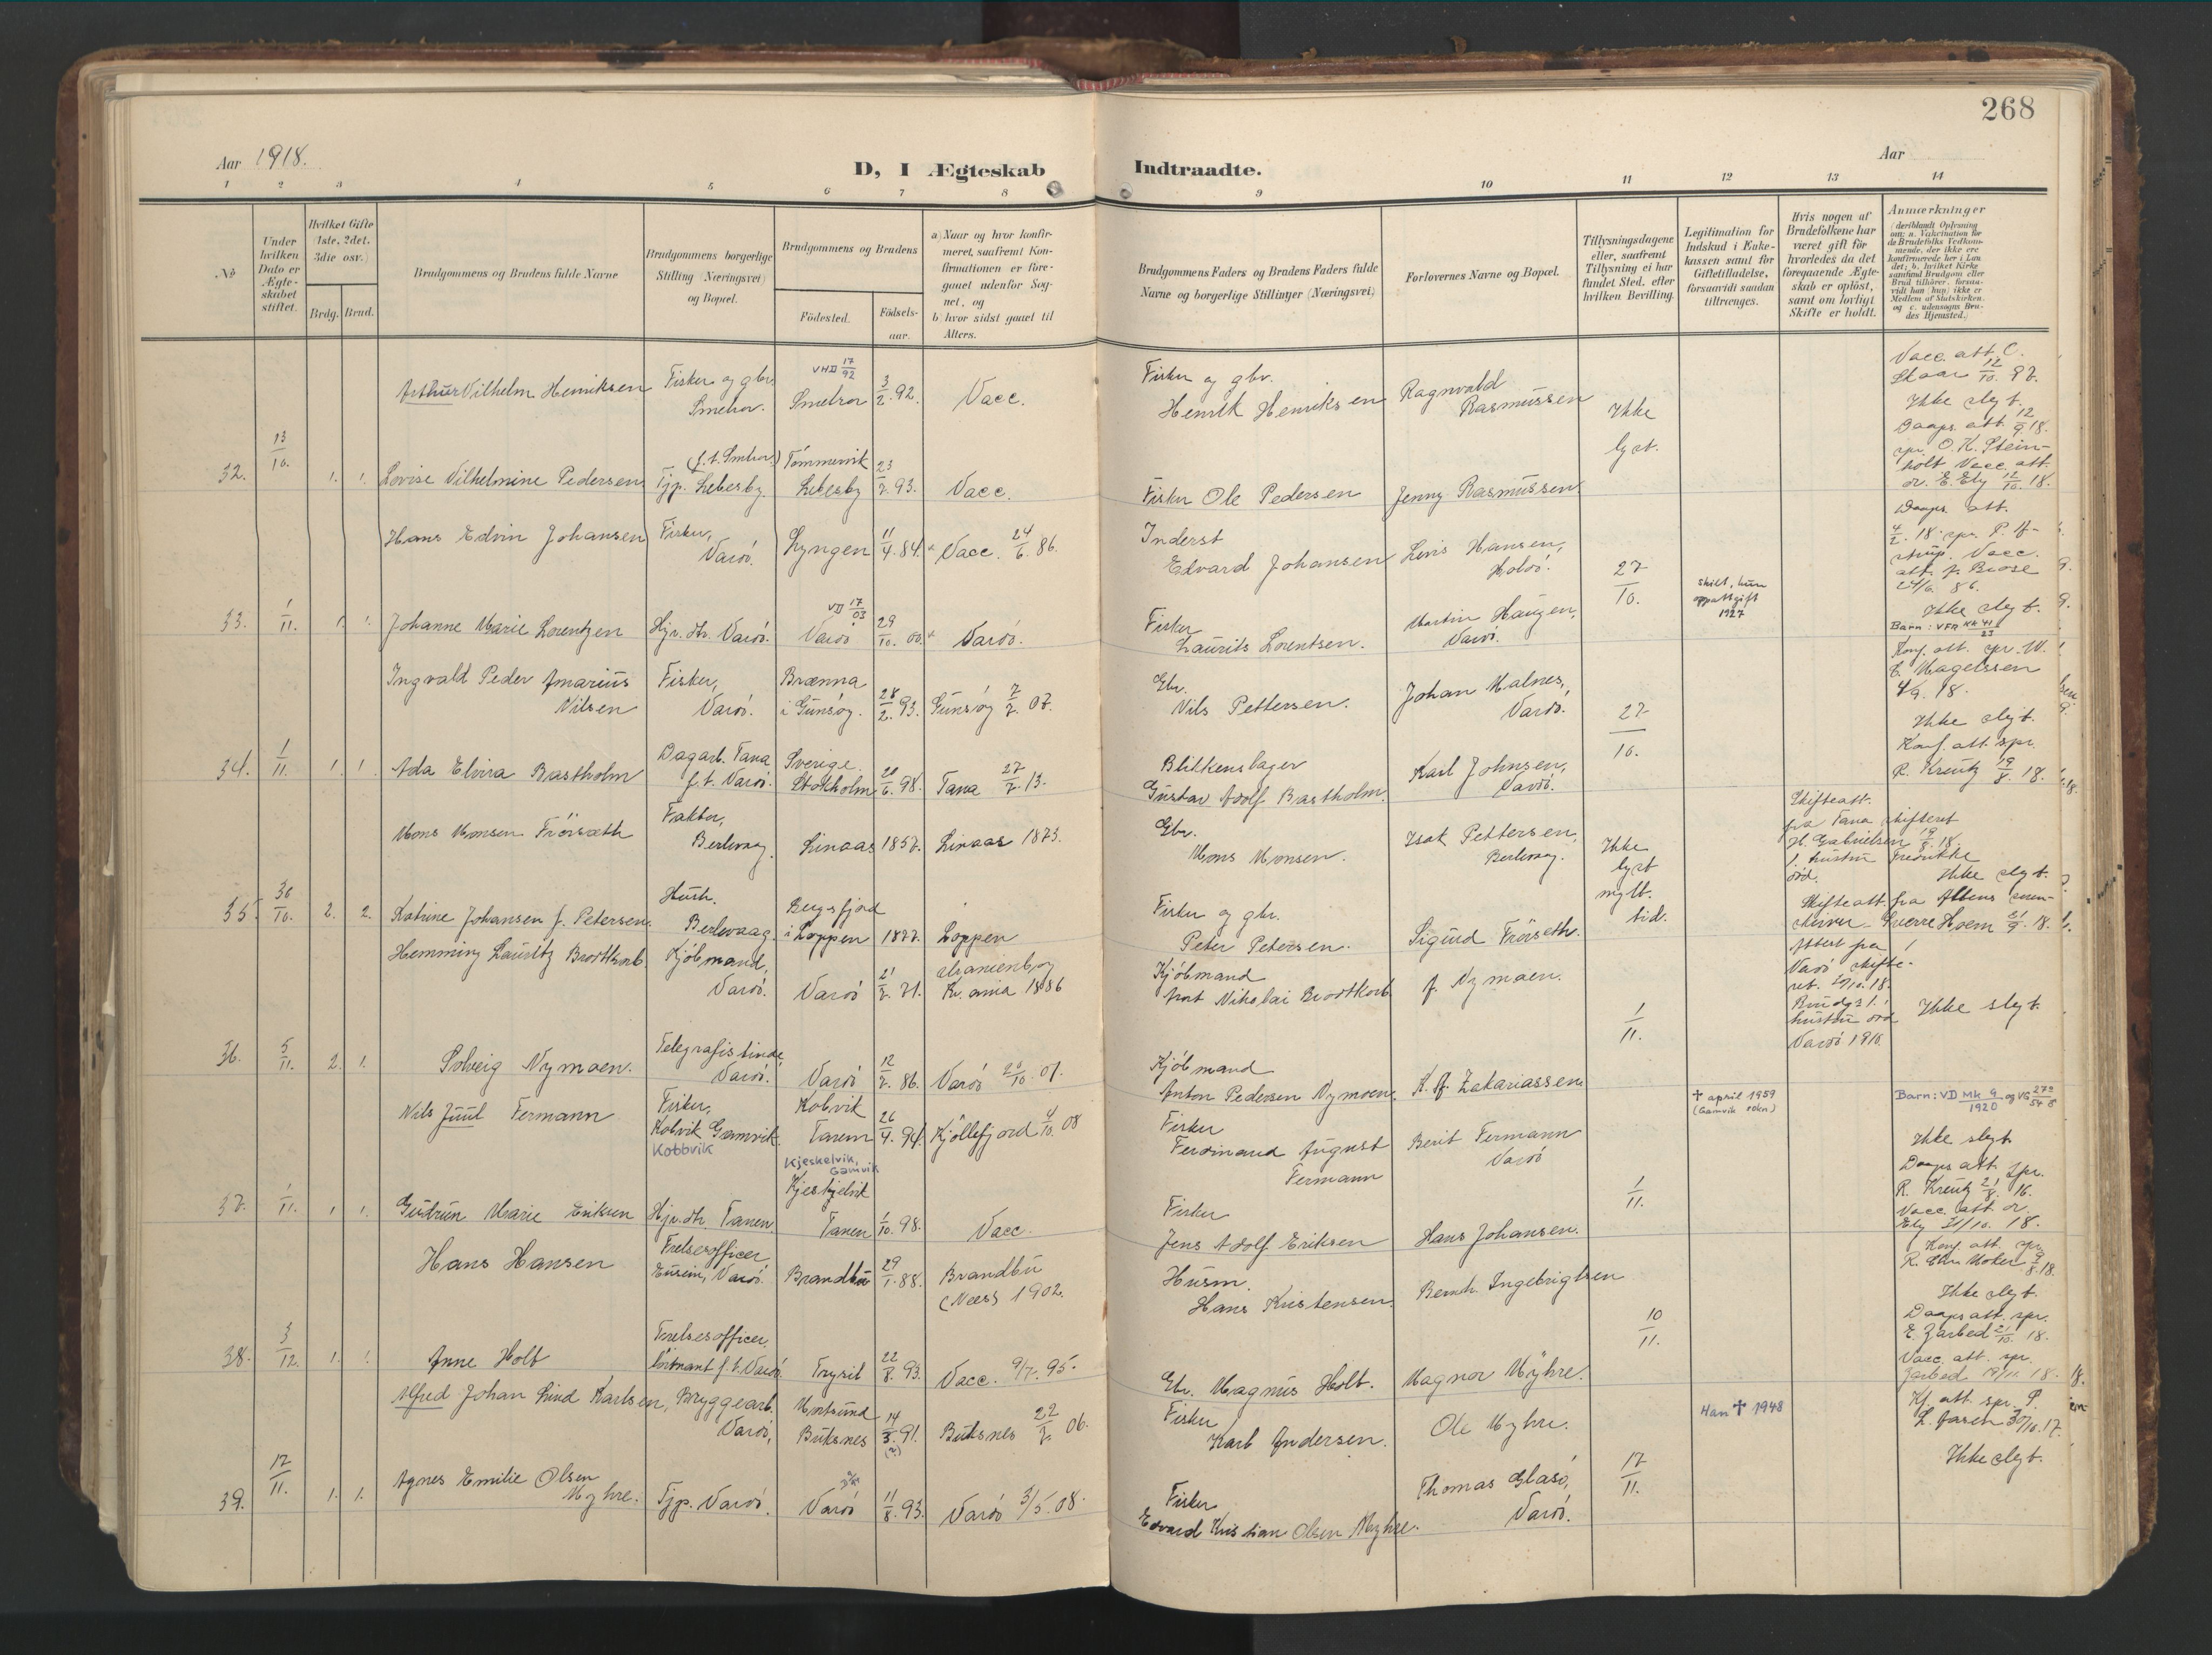 268
Aar 1918.
D, I Ægteskab Indtraadte.
Aar
1 2 3 4 5 6 7 8 9 10 11 12 13 14
No
Under hvilken Dato er Ægteskabet stiftet.
Hvilket Gifte (1ste, 2det, 3die osv.)
Brdg. Brud.
Brudgommens og Brudens fulde Navne
Brudgommens borgerlige Stilling (Næringsvei) og Bopæl.
Brudgommens og Brudens
Födested.
Födselsaar.
a) Naar og hvor konfirmeret, saafremt Konfirmationen er foregaaet udenfor Sognet, og
b) hvor sidst gaaet til Alters.
Brudgommens Faders og Brudens Faders fulde Navne og borgerlige Stillinger (Næringsvei)
Forlovernes Navne og Bopæl.
Tillysningsdagene eller, saafremt Tillysning ei har fundet Sted, efter hvilken Bevilling.
Legitimation for Indskud i Enkekassen samt for Giftetilladelse, forsaavidt saadan tiltrænges.
Hvis nogen af Brudefolkene har været gift för hvorledes da det foregaaende Ægteskab er oplöst, samt om lovligt Skifte er holdt.
Anmærkninger
(deriblandt Oplysning om: a. Vakcination for de Brudefolks Vedkommende, der ikke ere konfirmerede her i Landet; b. hvilket Kirkesamfund Brudgom eller Brud tilhörer, forsaavidt han (hun) ikke er Medlem af Statskirken. og c. udensogns Brudes Hjemsted.)
Arthur Vilhelm Henriksen
Fisker og gbr. Smelror.
VHD 17/92
Smelror 3/2. 92. Vacc.
Fisker og gbr.
Henrik Henriksen
Ragnvald Rasmussen
Ikke lyst.
Vacc. att. C.
Skaar 12/10. 97.
Ikke slegt.
32. 13/10. 1. 1. Lovise Vilhelmine Pedersen
(f. t. Smelror)
Tjp. Lebesby.
Tömmervik
Lebesby 23/7. 93. Vacc.
Fisker Ole Pedersen
Jenny Rasmussen
Daaps. att. 12/9 18.
spr. O. K. Steinholt Vacc. att.
dr. E. Ely 12/10. 18.
Hans Edvin Johansen
Fisker, Vardö.
Lyngen 11/4. 84. Vacc. 24/6. 86.
Inderst
Edvard Johansen
Levis Hansen,
27/10.
Daaps. att.
Vacc.
24/6. 86.
Ikke slegt.
33. 1/11. 1. 1. Johanne Marie Lorentzen
Hjv. dtr. Vardö.
VD 17/03
Vardö 29/10. 00. Vardö.
Fisker
Laurits Lorentsen.
Martin Haugen, Vardö.
skilt, hun oppattgift 1927
Barn: VFR KK 41/23
Ingvald Peder Amarius Nilsen
Fisker, Vardö.
Brænna i Gimsöy. 28/2. 93. Gimsöy 7/7. 07.
Gbr.
Nils Pettersen.
Johan Malnes, Vardö.
27/10.
Konf. att. spr. W.
E. Magelssen
4/9. 18.
Ikke slegt.
34. 1/11. 1. 1. Ada Elvira Bastholm
Dagarb. Tana f. t. Vardö.
Sverige. Stokholm 20/6. 98. Tana 27/7. 13.
Blikkenslager
Gustav Adolf Bastholm.
Karl Johnsen, Vardö.
Konf. att. spr.
R. Kreutz 19/8. 18.
Mons Monsen Fröiseth
Faktor, Berlevaag.
Linaas 1857. Linaas 1873.
Gbr.
Mons Monsen.
Isak Pettersen, Berlevaag.
Ikke lyst mglt. tid.
Skifteatt. fra Tana skifteret
H. Gabrielsen 19/8. 18.
1. hustru Fredrikke död.
Ikke slegt.
35. 30/10. 2. 2. Katrine Johansen f. Petersen.
Hush. Berlevaag.
Bergsfjord i Loppen 1877. Loppen
Fisker og gbr.
Peter Petersen.
Sigurd Fröiseth.
Skifteatt. fra Altens sorenskriver Sverre Hoem 21/9. 18.
Hemming Lauritz Brodtkorb.
Kjöbmand, Vardö.
Vardö 21/7. 71. Uranienborg Kr.ania 1886
Kjöbmand
Arnt Nikolai Brodtkorb
f. Nymoen.
1/11.
Attest fra Vardö skifteret. 29/10. 18.
Brudgs 1. hustru död Vardö 1910.
Ikke slegt.
36. 5/11. 2. 1. Solveig Nymoen.
Telegrafistinde, Vardö.
Vardö 12/7. 86. Vardö 20/10. 01.
Kjöbmand
Anton Pedersen Nymoen.
K. A. Zakariassen
Nils Juul Fermann
Fisker, Kobvik Gamvik
Kobbvik
Kobvik
Tanen 26/4. 94. Kjöllefjord 4/10. 08
Fisker
Ferdinand August Fermann
Berit Fermann Vardö
1/11.
† april 1959 (Gamvik sokn)
Barn: VD Mk 9/1920 og VG 27a/54
Ikke slegt
37. 1/11. 1. 1. Gudrun Marie Eriksen
Hjv. dtr. Tanen.
Kjeskelvik, Gamvik
Kjeskjelvik
Tanen 1/10. 98. Vacc.
Fisker
Jens Adolf Eriksen
Hans Johansen.
Daaps att. spr.
R. Kreutz 21/8. 16.
Vacc. att. dr.
Ely 31/10. 18.
Hans Hansen
Frelsesofficer
Vardö.
Brandbu 29/1. 88. Brandbu (Næss) 1902.
Husm.
Hans Kristensen.
Bernh. Ingebrigtsen
10/11.
Konf. att. spr.
Ikke slegt.
38. 3/12. 1. 1. Anne Holt
Frelsesofficer, löitnant f. t. Vardö.
Trysil 22/8. 93. Vacc. 9/7. 95.
Gbr. Magnus Holt.
Magnor Myhre.
Daapsatt. spr.
E. Zarbed 21/10. 18.
Vacc. att. spr.
Alfred Johan Lind Karlsen,
Bryggearb. Vardö,
Mortsund
Buksnes 14/3. 91. (?) Buksnes 22/7. 06.
Fisker
Karl Andersen.
Ole Myhre.
Han † 1948
Kf. att. spr. P.
30/10. 17.
Ikke slegt.
39. 17/11. 1. 1. Agnes Emilie Olsen Myhre.
Tjp. Vardö.
Vardö 11/8. 93. Vardö 3/5. 08.
Fisker
Edvard Kristian Olsen Myhre.
Thomas Glasö, Vardö.
17/11.